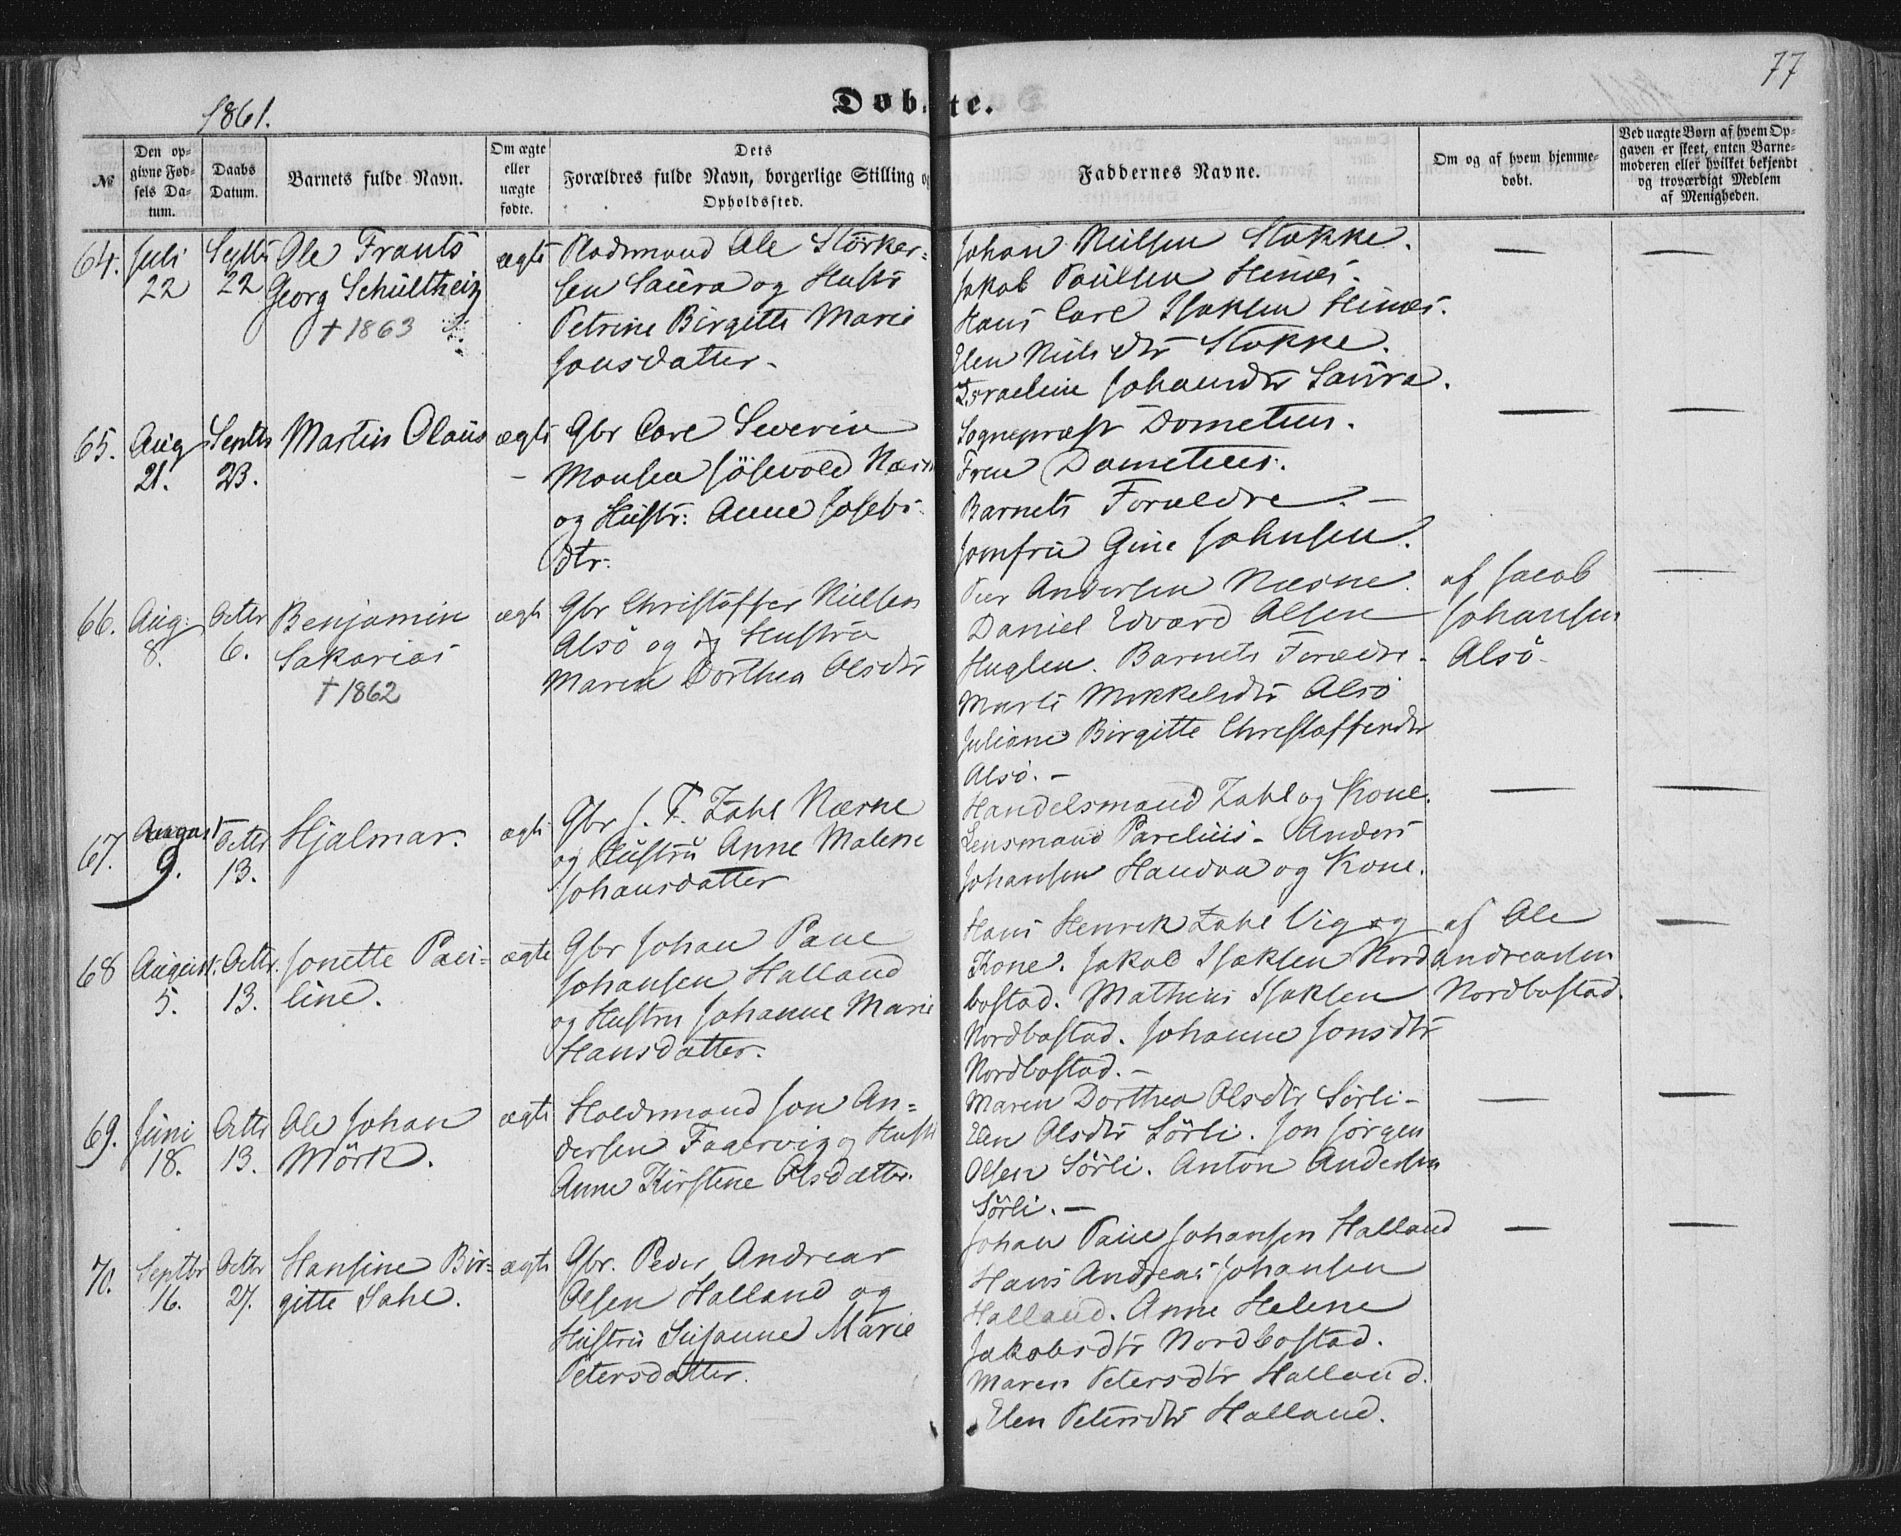 77
1861.
Døbte.
№
Den opgivne Fødsels Datum.
Daabs Datum.
Barnets fulde Navn.
Om ægte eller uægte fødte.
Dets Forældres fulde Navn, borgerlige Stilling og Opholdssted.
Faddernes Navne.
Om og af hvem hjemmedøbt.
Ved uægte Børn af hvem Opgaven er skeet, enten Barnemoderen eller hvilket bekjendt og troværdigt Medlem af Menigheden.
64. Juli 22
Septbr 22
Ole Frants
Georg Schültheiz
† 1863
ægte
Pladsmand Ole Störker-
sen Saura og Hustr
Petrine Birgitte Marie
Jonsdatter-
Johan Nielsen Stokke.
Jakob Paulsen Himes.
Hans Carl Isaksen Himes.
Elen Nielsdtr Stokke.
Israeline Johansdtr Saura.
65. Aug 21.
Septbr 23.
Martin Olaus
ægte
Gbr Carl Severin
Monsen Jösevold Næsne
og Hustr: Anne Josebs-
dtr.
Sognepræst Dometius.
Frue Dometius.
Barnets Forældre.-
Jomfru Gine Johnsen.
66. Aug: 8.
Octbr 6.
Benjamin
Sakarias
† 1862
ægte
Gbr Christoffer Nielsen
Alsö og Hustru
Maren Dorthea Olsdtr
Peer Andersen Næsne.
Daniel Edvard Olsen
Huglen. Barnets Forældre.
Marti Mikkelsdtr Alsö
Juliane Birgitte Christoffersdtr
Alsö.-
af Jacob
Johansen
Alsö-
67. August 9.
Octbr 13.
Hjalmar.
ægte
Gbr J. F. Zahl Næsne
og Hustru Anne Malene
Johansdatter
Handelsmand Zahl og Kone.
Lensmand Parelius- Anders
Johansen Handva og Kone.
68 August. 5.
Octbr. 13.
Jonette Pau-
line.
ægte
Gbr Johan Paul
Johansen Halland
og Hustru Johanne Marie
Hansdatter.
Hans Henrik Zahl Vig og
Kone. Jakob Isaksen Nord
bostad. Mathias Isaksen
Nordbostad. Johanne Jonsdtr
Nordbostad.-
af Ole
Andreassen
Nordbostad.
69. Juni 18.
Octbr 13.
Ole Johan
Mörk.
ægte
Holdsmand Jon An-
dersen Fagervig og Hustr
Anne Kirstene Olsdatter.
Maren Dorthea Olsdtr Sörli-
Elen Olsdtr Sörli. Jon Jörgen
Olsen Sörli. Anton Andersen
Sörli.-
70. Septbr 16.
Octbr 27.
Hansine Bir-
gitte Sahl.
ægte
Gbr. Peder Andreas
Olsen Halland og
Hustru Susanne Marie
Petersdatter.
Johan Paul Johansen Halland
Hans Andreas Johansen
Halland. Anne Helene
Jakobsdtr Nordbostad.
Maren Petersdtr Halland.
Elen Petersdtr Halland.